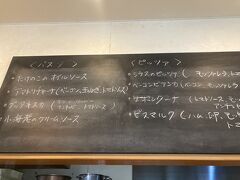 <パスタ>
・たけのこのオイルソース
・アマトリチャーナ(ベーコン、玉ねぎ、トマトソース)
・プッタネスカ(トマトソース)
・小海老のクリームソース
<ピッツァ>
・シラスのピッツァ(モッツァレラ、トマ
・ベーコンピアンカ(ベーコン、モッツァレラ
・ナポレターナ(トマトソース、モ
・ビスマルク(ハム、卵、モッ